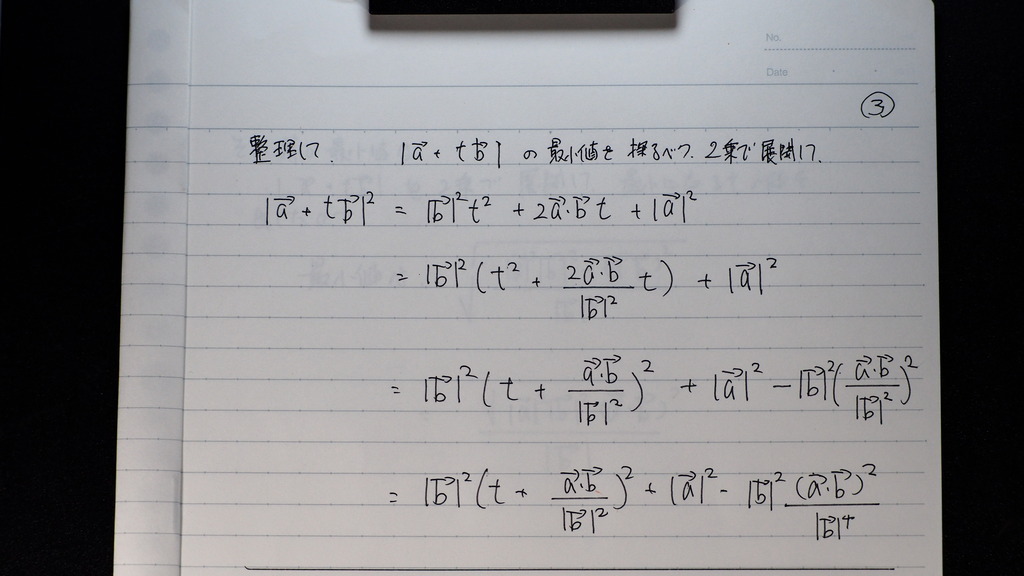 No.
Date
③
整理して. |a⃗ + t b⃗| の 最小値を 探るべく. 2乗で展開して.
|a⃗ + t b⃗|² = |b⃗|² t² + 2a⃗·b⃗ t + |a⃗|²
= |b⃗|² (t² + \frac{2a⃗·b⃗}{|b⃗|²} t) + |a⃗|²
= |b⃗|² (t + \frac{a⃗·b⃗}{|b⃗|²})² + |a⃗|² - |b⃗|² (\frac{a⃗·b⃗}{|b⃗|²})²
= |b⃗|² (t + \frac{a⃗·b⃗}{|b⃗|²})² + |a⃗|² - |b⃗|² \frac{(a⃗·b⃗)²}{|b⃗|⁴}